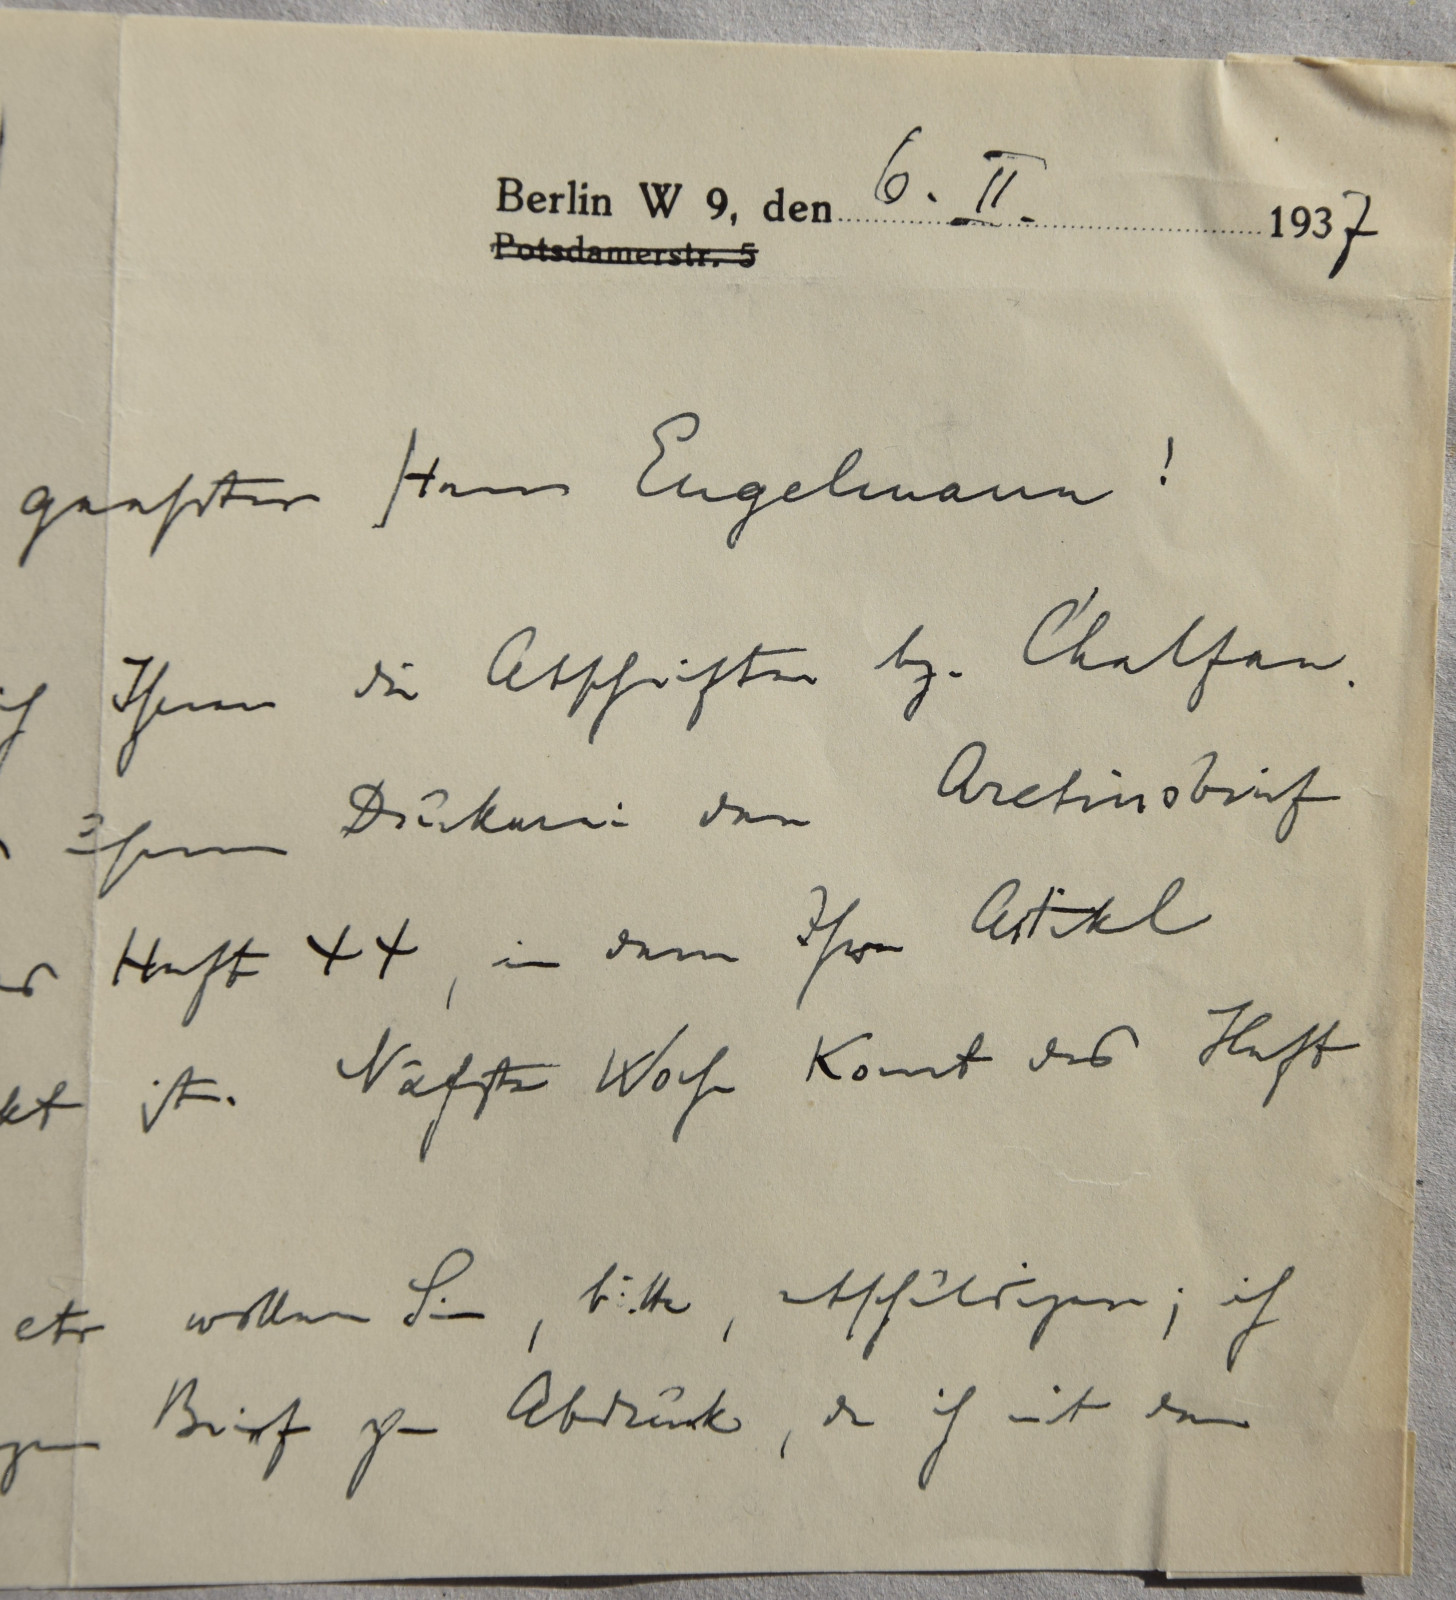 Berlin W 9, den 6. II. 1937
Potsdamerstr. 5
geehrter Herr Engelmann!
ich Ihnen die Abschriften bz. Chalfan.
Ihrem Drucker den Aretinobrief
Heft 44, in dem Ihr Artikel
kt ist. Nächste Woche kommt das Heft
etr wollen Sie, bitte, entschuldigen; ich
Brief zum Abdruck, da ich mit dem